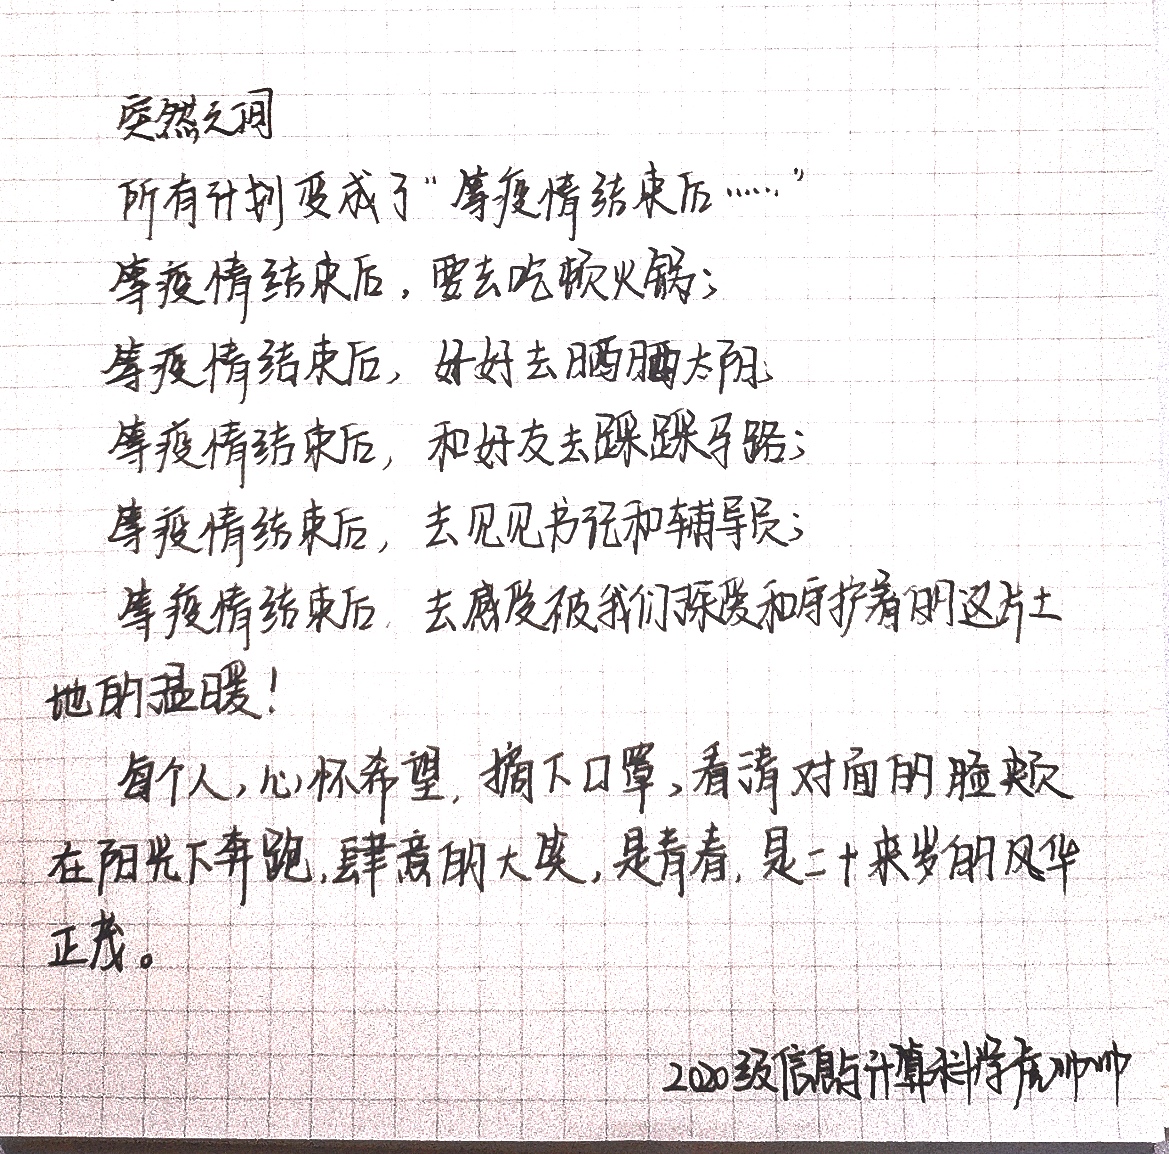 突然之间
所有计划变成了“等疫情结束后……”
等疫情结束后，要去吃顿火锅；
等疫情结束后，好好去晒晒太阳；
等疫情结束后，和好友去踩踩马路；
等疫情结束后，去见见书记和辅导员；
等疫情结束后，去感受被我们深爱和守护着的这片土
地的温暖！
每个人，心怀希望，摘下口罩，看清对面的脸颊
在阳光下奔跑，肆意的大笑，是青春，是二十来岁的风华
正茂。
2020级信息与计算科学 帅帅